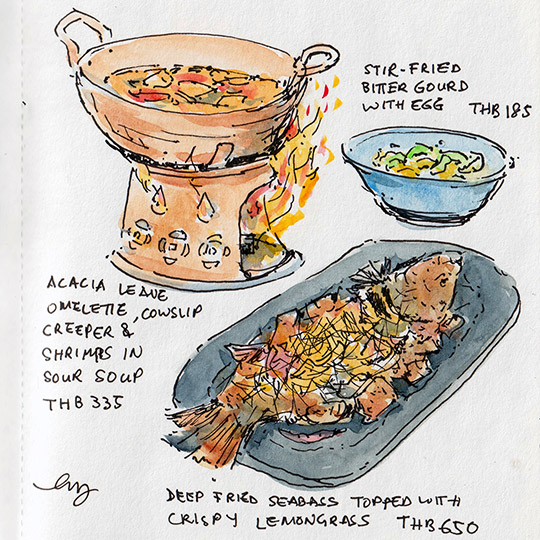 STIR-FRIED
BITTER GOURD
WITH EGG THB 185
ACACIA LEAVE
OMELETTE, COWSLIP
CREEPER &
SHRIMPS IN
SOUR SOUP
THB 335
DEEP FRIED SEABASS TOPPED WITH
CRISPY LEMONGRASS THB 650